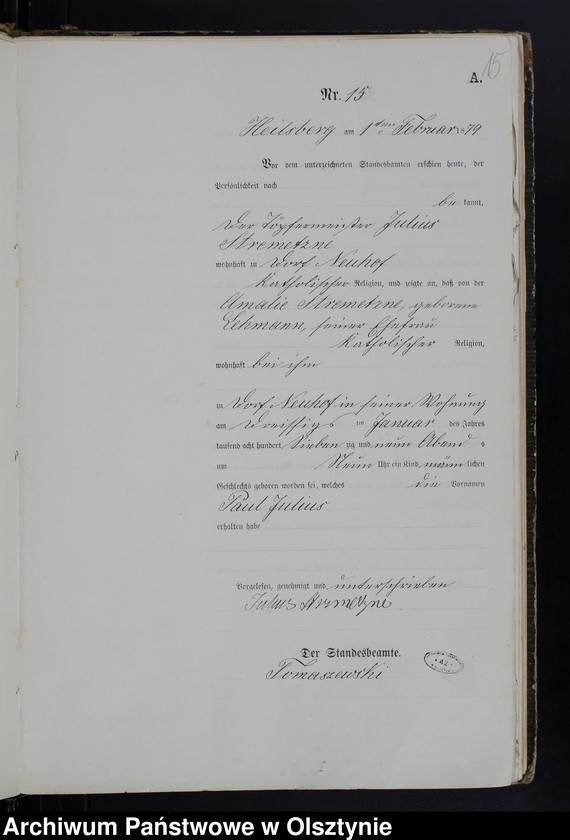 15
A.
Nr. 15
Heilsberg am 1ten Februar 1879
Vor dem unterzeichneten Standesbeamten erschien heute, der
Persönlichkeit nach
be kannt,
der Töpfermeister Julius
Stremetzne
wohnhaft zu Dorf Neuhof
Katholischer Religion, und zeigte an, daß von der
Amalie Stremetzne, geborene
Lehmann, seiner Ehefrau
Katholischer Religion,
wohnhaft bei ihm
zu Dorf Neuhof in seiner Wohnung
am Dreissigs ten Januar des Jahres
tausend acht hundert Sieben zig und neun Abend s
um Neun Uhr ein Kind männ lichen
Geschlechts geboren worden sei, welches die Vornamen
Paul Julius
erhalten habe
Vorgelesen, genehmigt und unterschrieben
Julius Stremetzne
Der Standesbeamte.
Tomaszewski
Archiwum Państwowe w Olsztynie